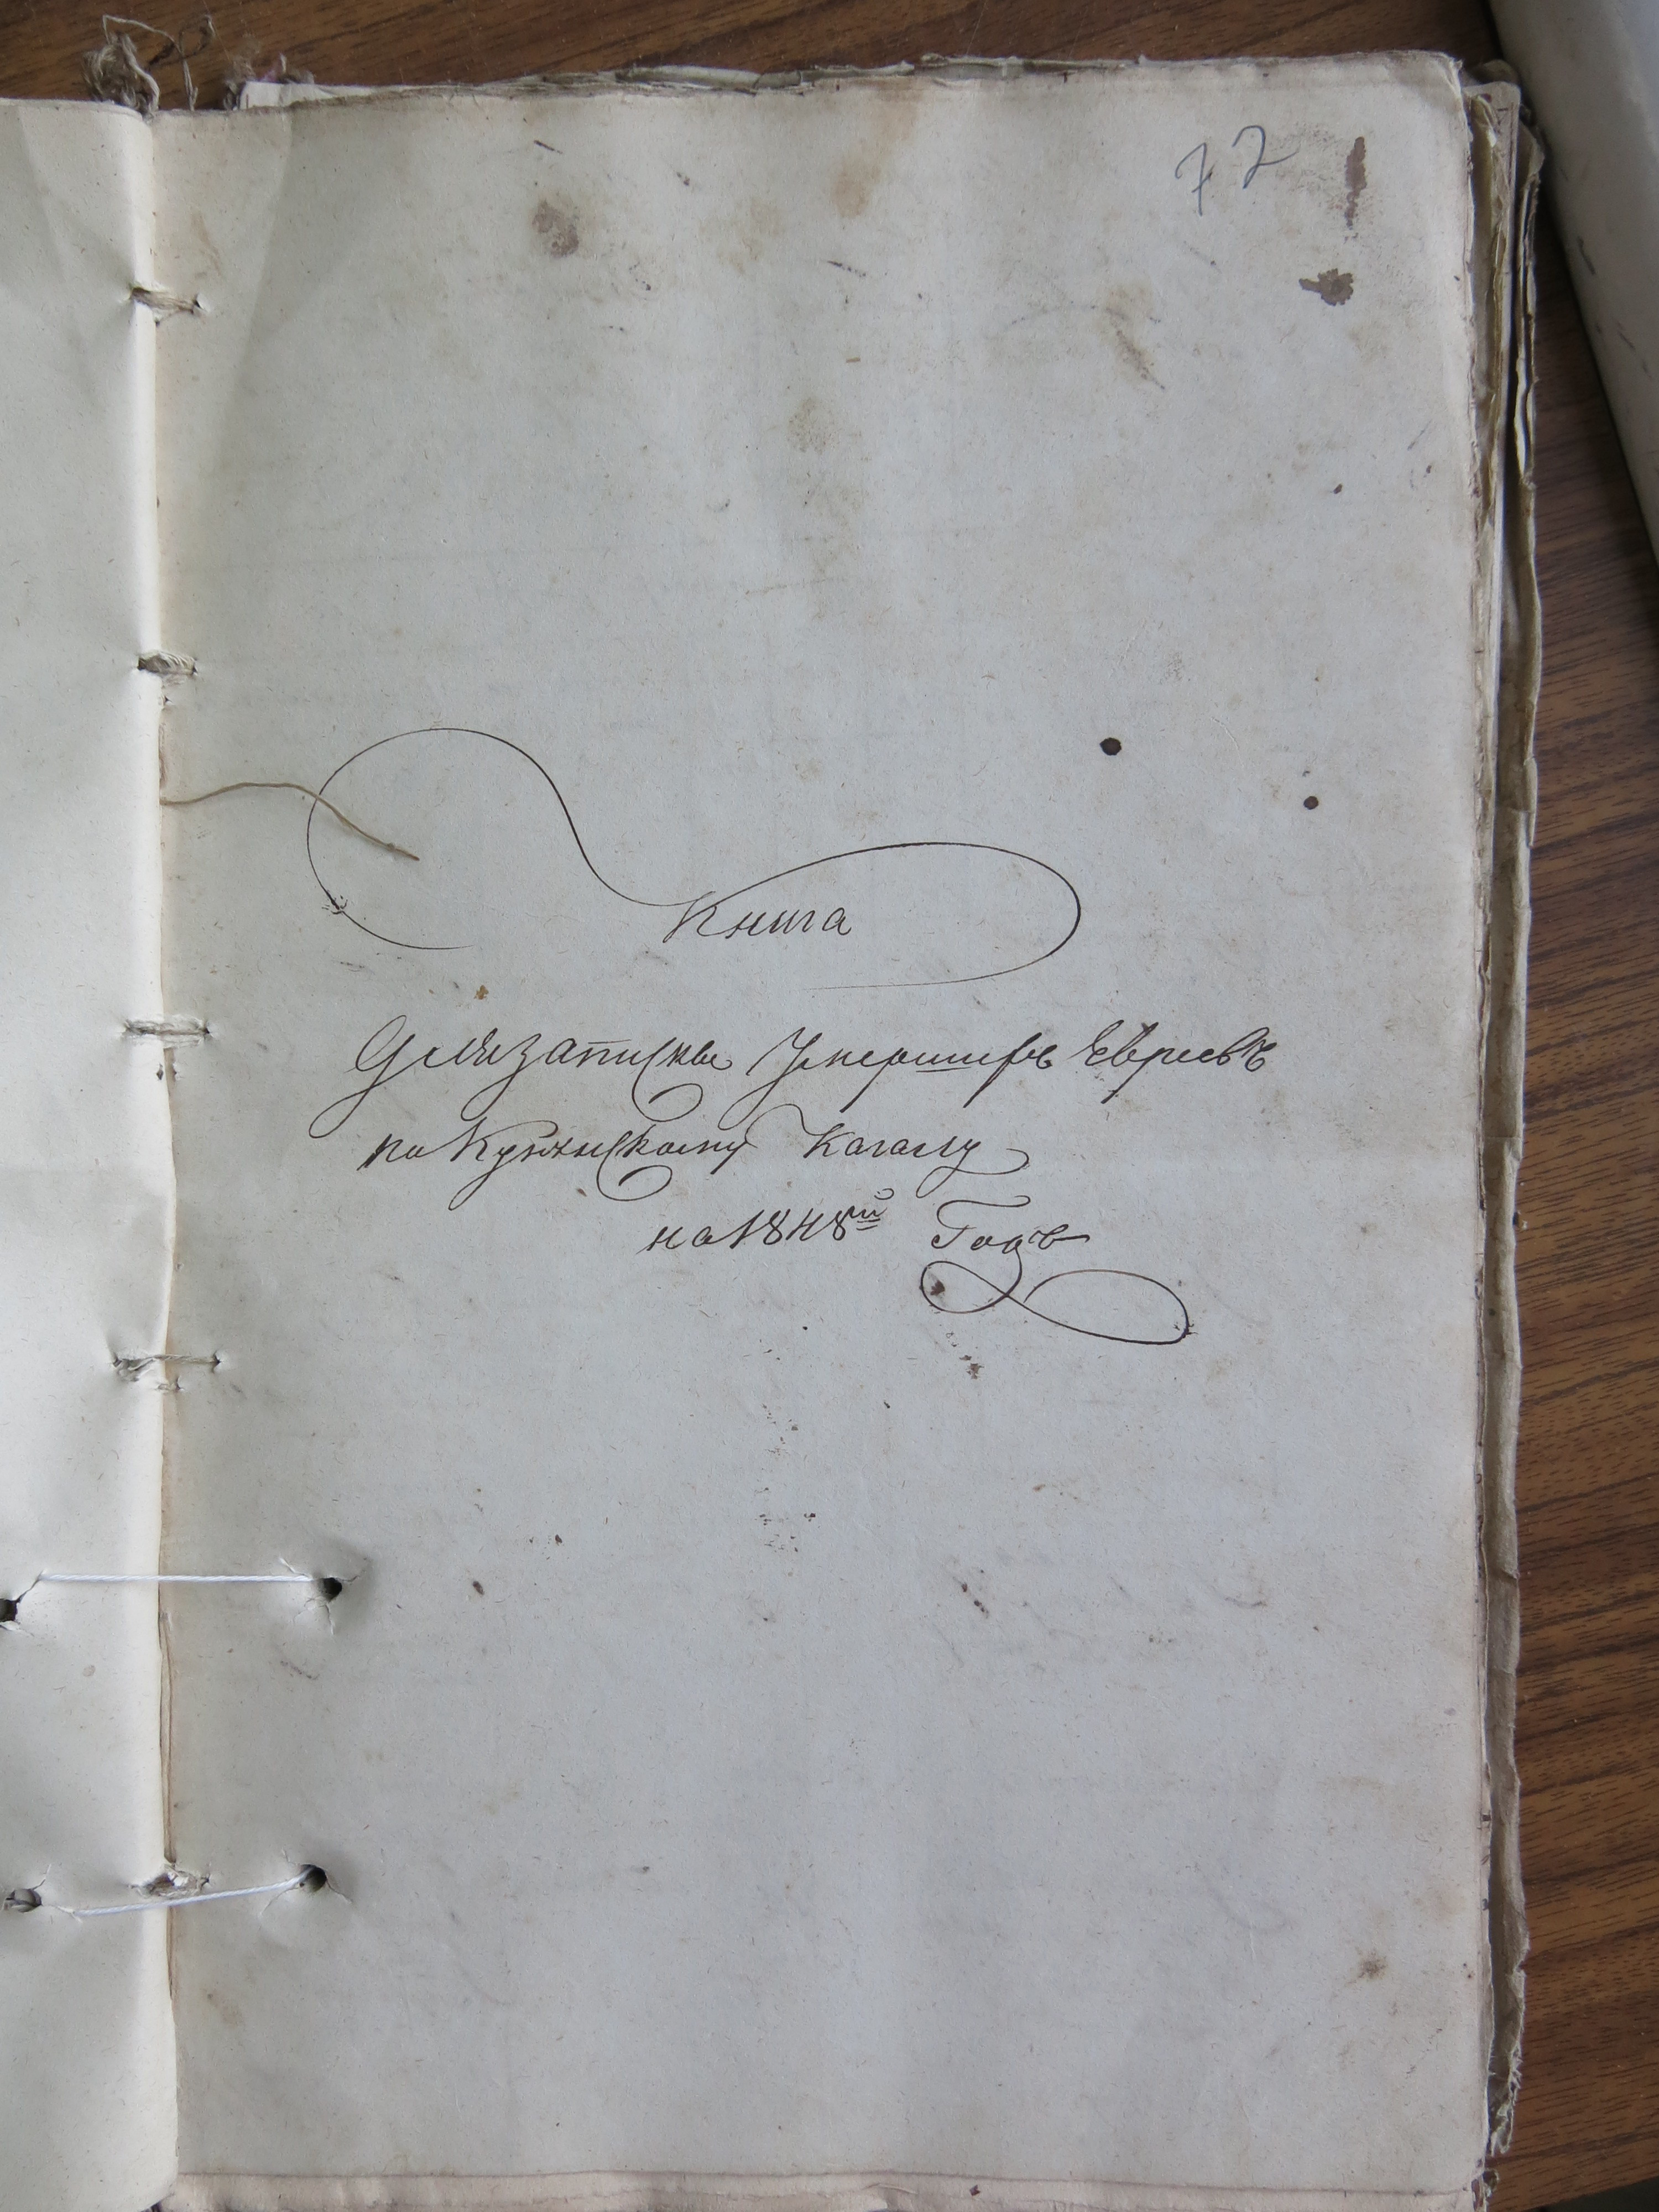 72
Книга
Для записки Умершихъ Евреевъ
по Кунинскому Кагалу
на 1848й Годъ